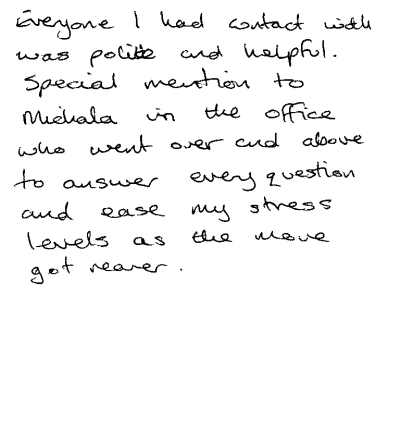 Everyone I had contact with
was polite and helpful.
Special mention to
Michala in the office
who went over and above
to answer every question
and ease my stress
levels as the move
got nearer.